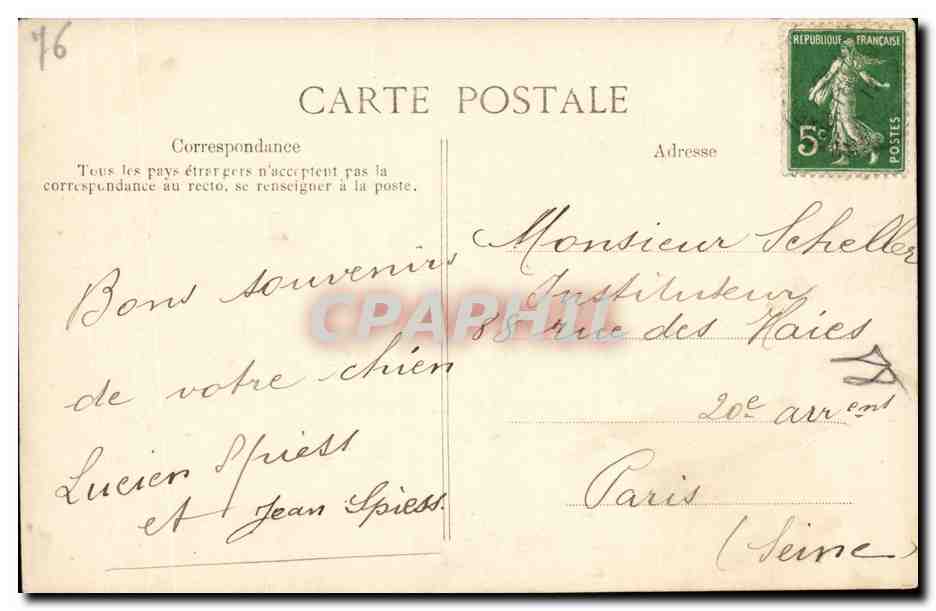 76
CARTE POSTALE
RÉPUBLIQUE FRANÇAISE
5c
POSTES
Correspondance
Tous les pays étrangers n'acceptent pas la
correspondance au recto, se renseigner à la poste.
Bons souvenirs
de votre chien
Lucien Spiess
et Jean Spiess.
Adresse
Monsieur Scheller
Instituteur
88 rue des Haies
20e arrent
Paris
(Seine)
CPAPHIL